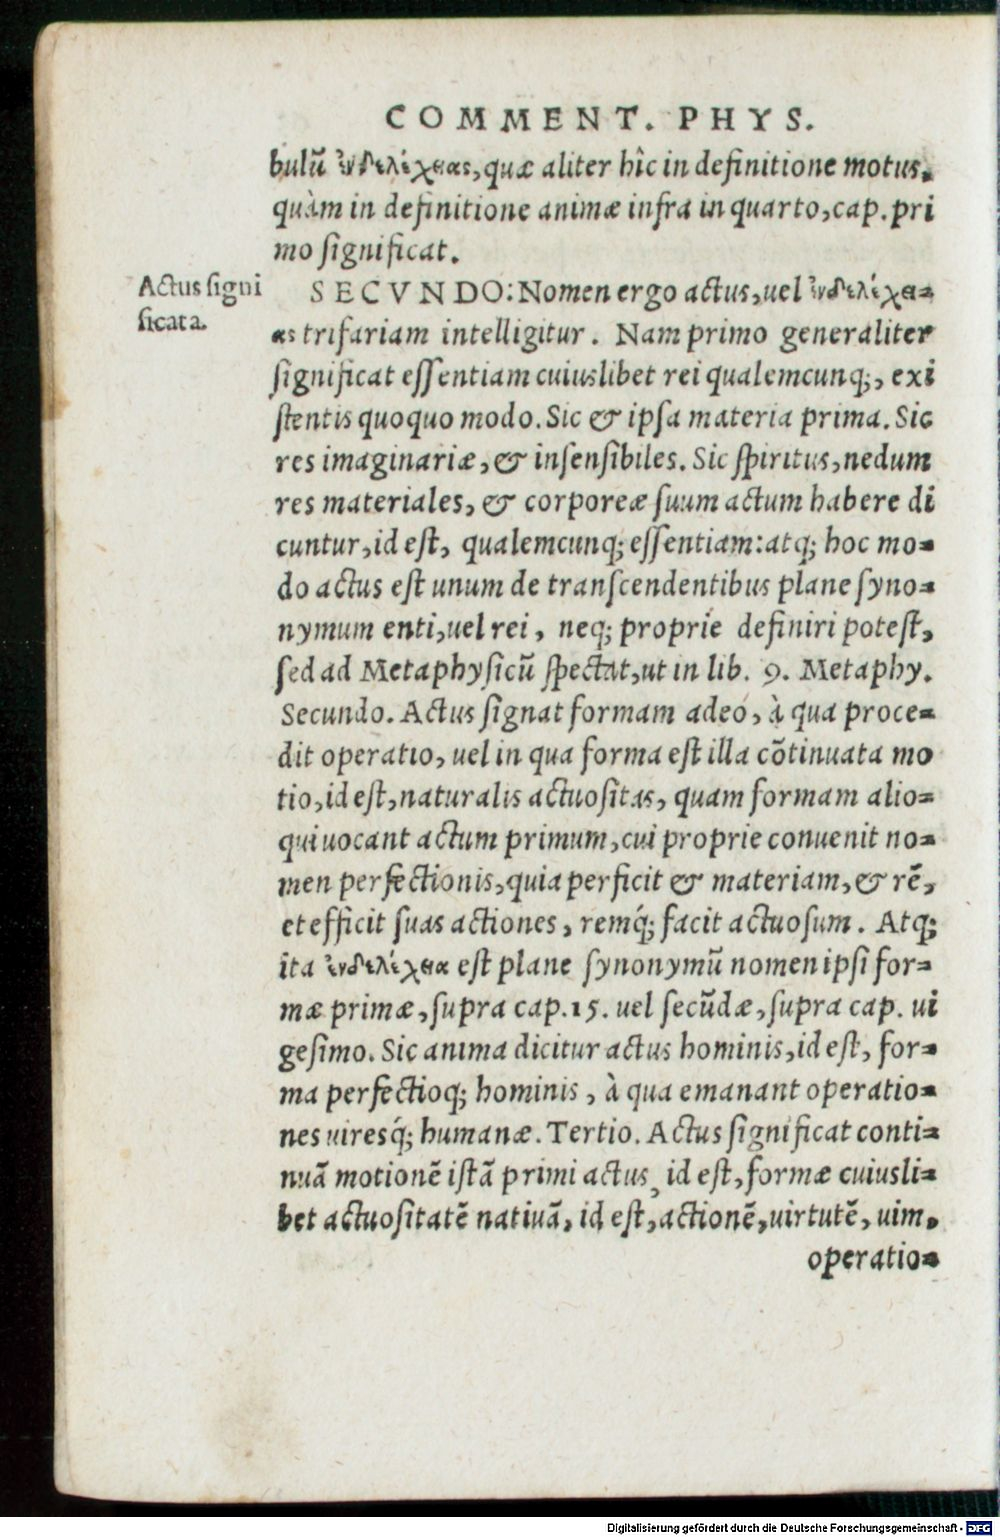 COMMENT. PHYS.
bulū ἐνδελέχειας, quæ aliter hîc in definitione motus,
quàm in definitione animæ infra in quarto, cap. pri
mo significat.
Actus signi
ficata.
SECVNDO: Nomen ergo actus, uel ἐνδελέχει-
ας trifariam intelligitur. Nam primo generaliter
significat essentiam cuiuslibet rei qualemcunq;, exi
stentis quoquo modo. Sic & ipsa materia prima. Sic
res imaginariæ, & insensibiles. Sic spiritus, nedum
res materiales, & corporeæ suum actum habere di
cuntur, id est, qualemcunq; essentiam: atq; hoc mo-
do actus est unum de transcendentibus plane syno-
nymum enti, uel rei, neq; proprie definiri potest,
sed ad Metaphysicū spectat, ut in lib. 9. Metaphy.
Secundo. Actus signat formam adeo, à qua proce-
dit operatio, uel in qua forma est illa cōtinuata mo
tio, id est, naturalis actuositas, quam formam alio-
qui uocant actum primum, cui proprie conuenit no-
men perfectionis, quia perficit & materiam, & rē,
et efficit suas actiones, remq́; facit actuosum. Atq;
ita ἐνδελέχεια est plane synonymū nomen ipsi for-
mæ primæ, supra cap. 15. uel secūdæ, supra cap. ui
gesimo. Sic anima dicitur actus hominis, id est, for-
ma perfectioq; hominis, à qua emanant operatio-
nes uiresq́; humanæ. Tertio. Actus significat conti-
nuā motionē istā primi actus, id est, formæ cuiusli-
bet actuositatē natiuā, id est, actionē, uirtutē, uim,
operatio-
Digitalisierung gefördert durch die Deutsche Forschungsgemeinschaft - DFG